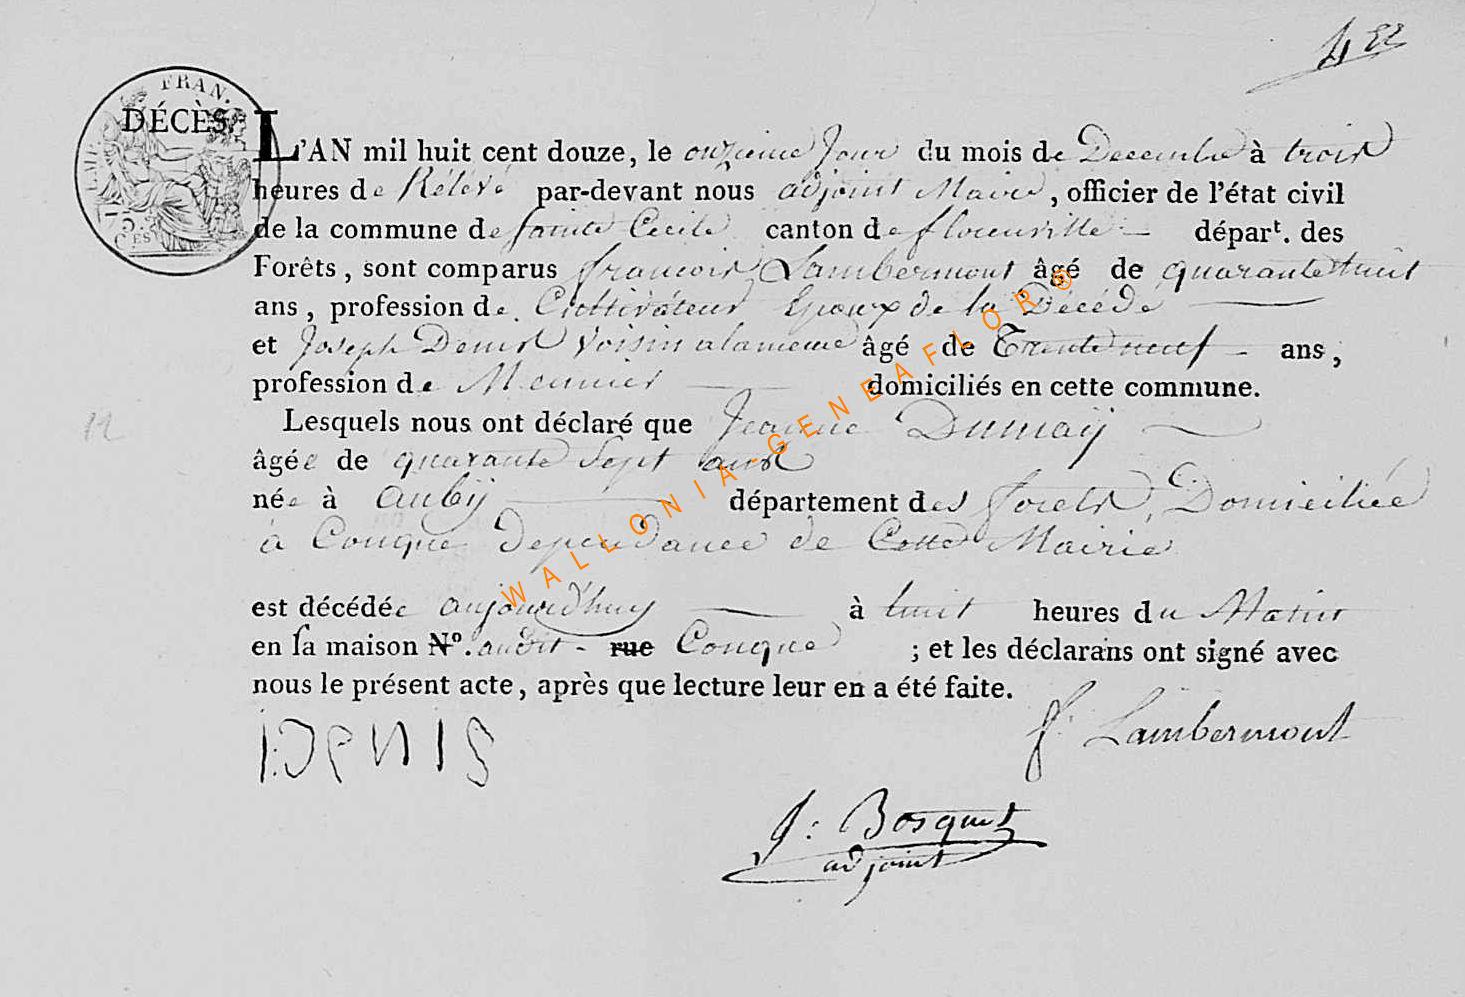 4ee
EMP. FRAN.
75
CES
DÉCÈS.
L'AN mil huit cent douze, le onzieme Jour du mois de Decembre à trois
heures de Rélevé par-devant nous adjoint Maire, officier de l'état civil
de la commune de sainte Cecile canton de florenville départ. des
Forêts, sont comparus francois Lambermont âgé de quarante huit
ans, profession de Cultivateur Epoux de la Décédé
et Joseph Denis Voisin alameme âgé de Trente neuf ans,
profession de Meunier domiciliés en cette commune.
12
Lesquels nous ont déclaré que Jeanne Dumaÿ
âgée de quarante Sept ans
née à aubÿ département des forets, Domiciliée
à Conque Dependance de Cette Mairie
est décédée aujourd'huy à huit heures du Matin
en sa maison N°. audit rue Conque ; et les déclarans ont signé avec
nous le présent acte, après que lecture leur en a été faite.
I:DENIS
f. Lambermont
J: Bosquet
adjoint
WALLONIA-GENEAFLOR®